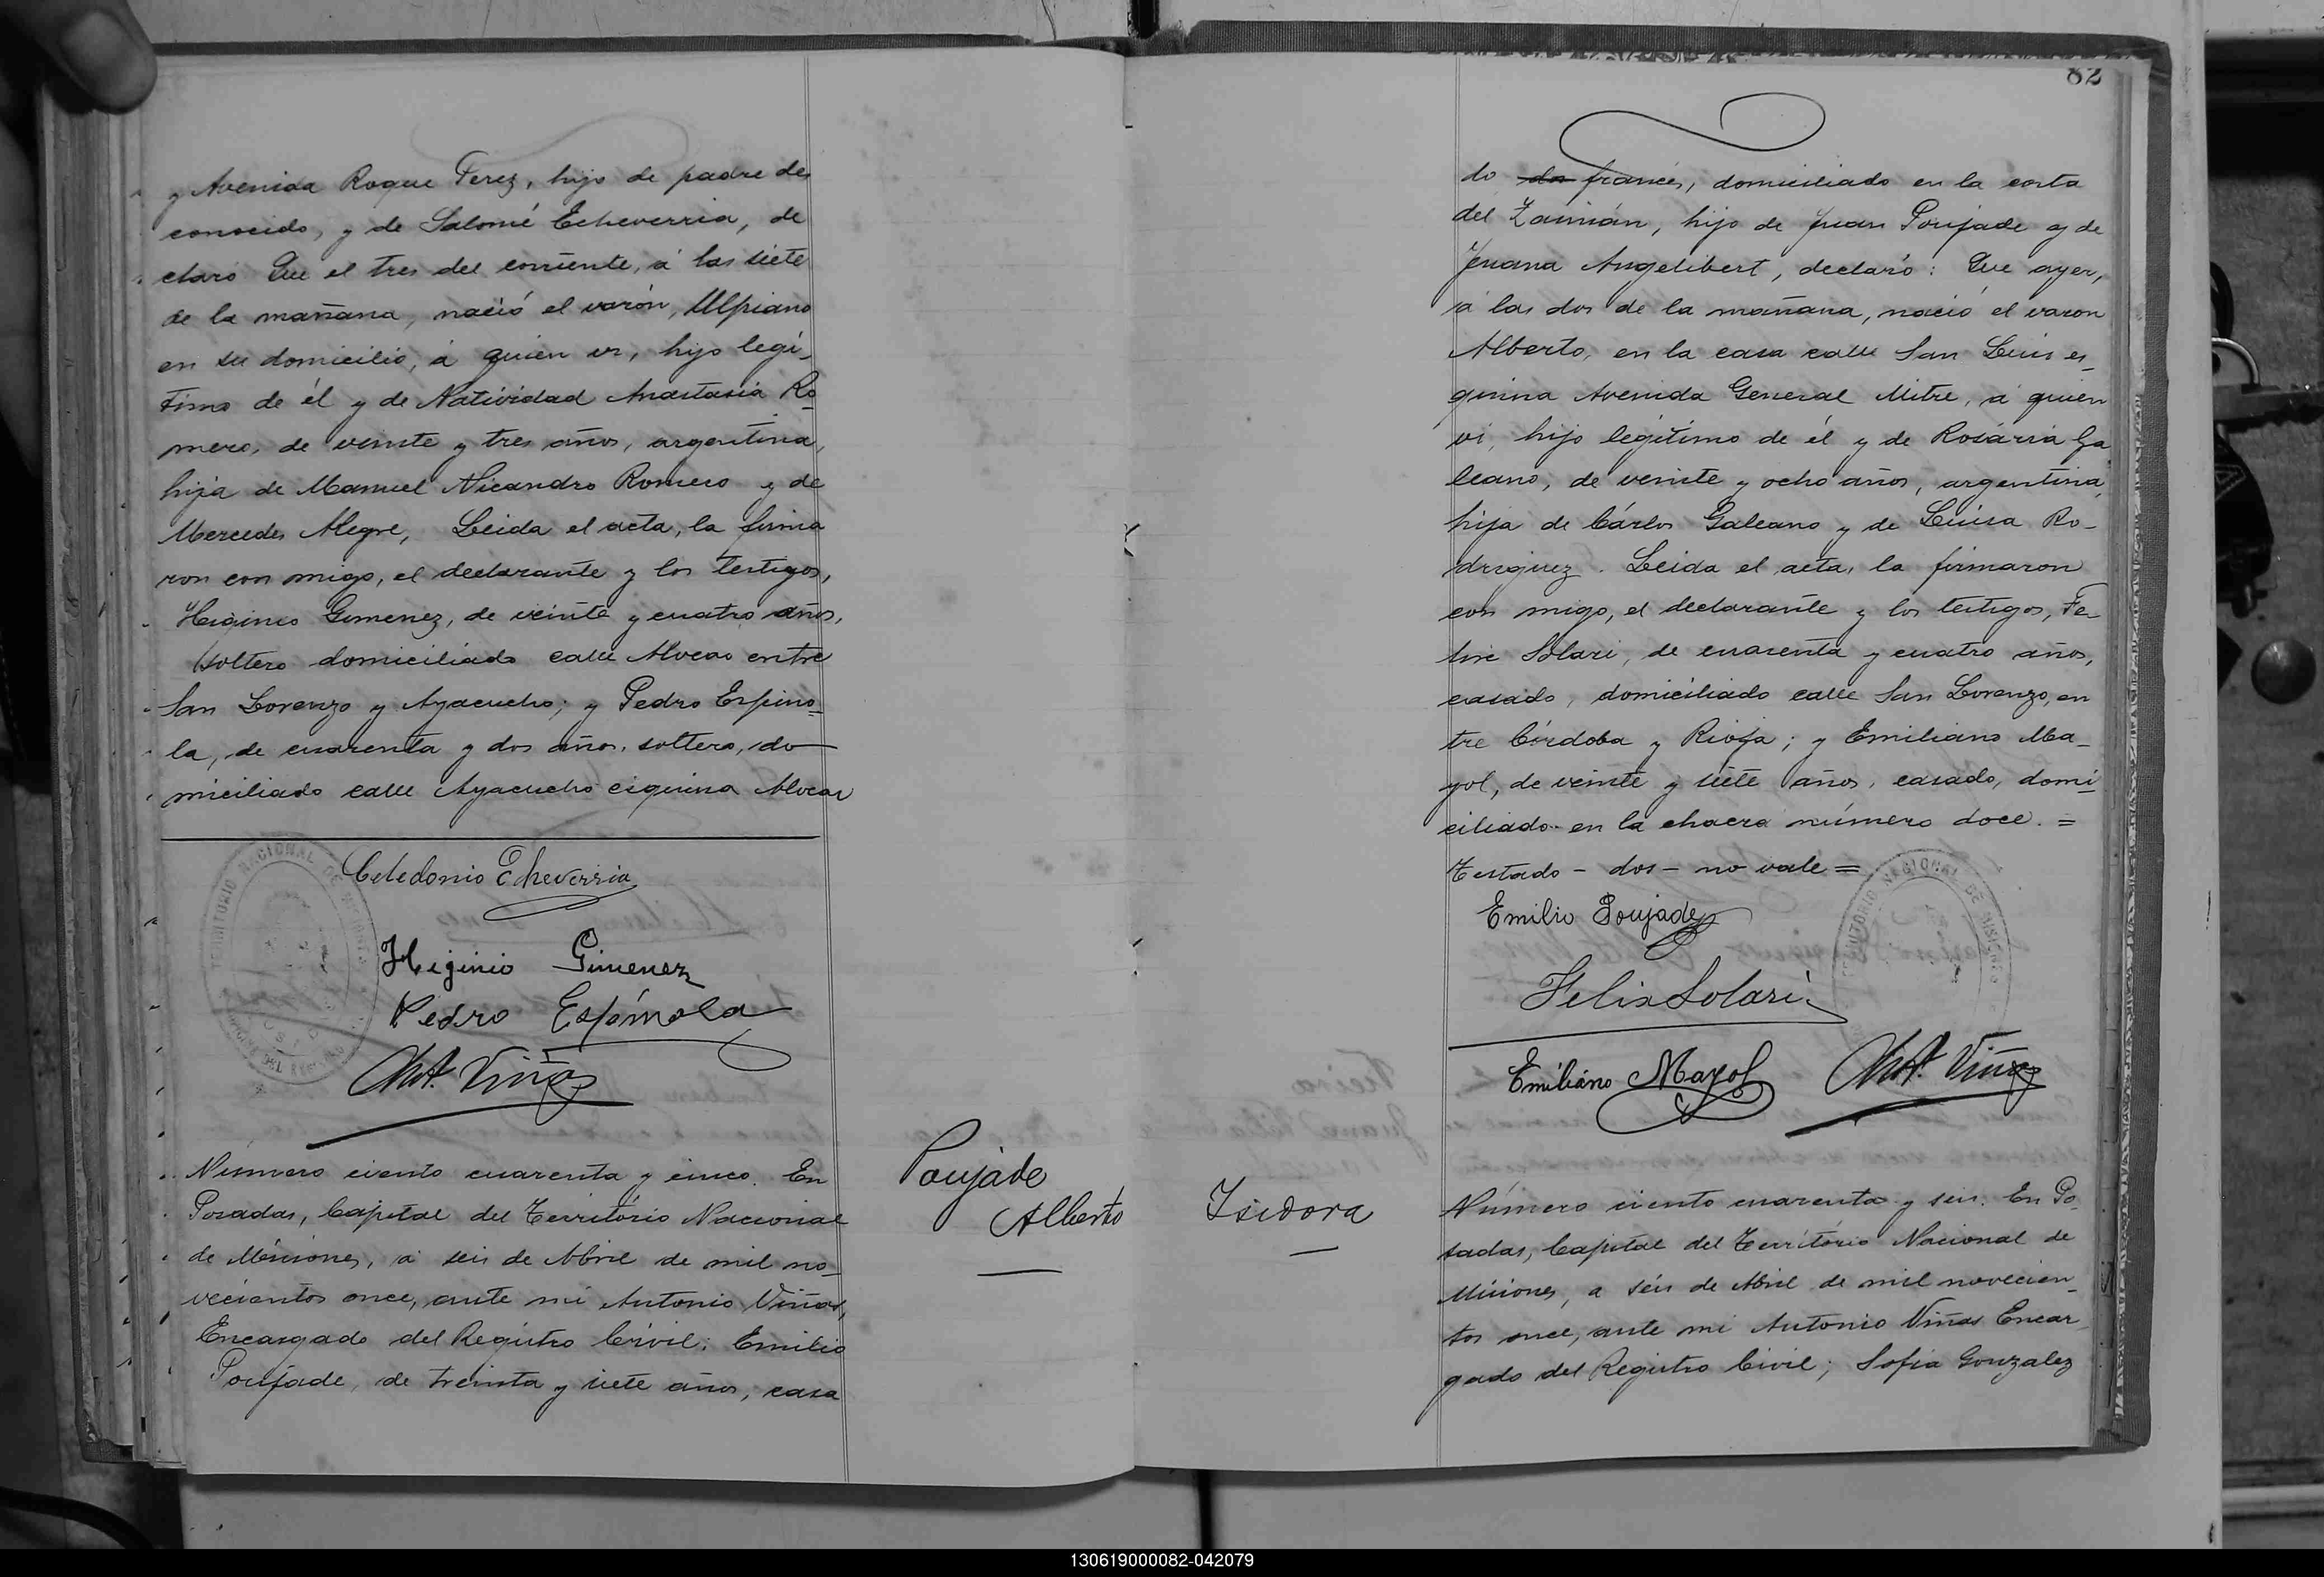 y Avenida Roque Perez, hijo de padre des
conocido, y de Salomé Echeverria, de
claró Que el tres del corriente, á las siete
de la mañana, nació el varón, Ulpiano
en su domicilio, á quien vi, hijo legi-
timo de él y de Natividad Anastasia Ro-
mero, de veinte y tres años, argentina,
hija de Manuel Nicandro Romero y de
Mercedes Alegre, Leida el acta, la firma
ron con migo, el declarante y los testigos,
Higinio Gimenez, de veinte y cuatro años,
soltero domiciliado calle Alvear entre
San Lorenzo y Ayacucho; y Pedro Espino-
la, de cuarenta y dos años, soltero, do
miciliado calle Ayacucho esquina Alvear
Celedonio Echeverria
Higinio Gimenez
Pedro Espínola
Ant. Viñas
Número ciento cuarenta y cinco. En
Posadas, Capital del Territorio Nacional
de Misiones, á seis de Abril de mil no-
vecientos once, ante mi Antonio Viñas,
Encargado del Registro Civil; Emilio
Poujade, de treinta y siete años, casa
Poujade
Alberto
82
do dos francés, domiciliado en la costa
del Zaimán, hijo de Juan Poujade y de
Juana Angelibert, declaró: Que ayer,
á las dos de la mañana, nació el varon
Alberto, en la casa calle San Luis es-
quina Avenida General Mitre, á quien
vi, hijo legítimo de él y de Rosaria Ga
leano, de veinte y ocho años, argentina,
hija de Cárlos Galeano y de Luisa Ro-
driguez. Leida el acta, la firmaron
con migo, el declarante y los testigos, Fe-
lix Solari, de cuarenta y cuatro años,
casado, domiciliado calle San Lorenzo, en
tre Córdoba y Rioja; y Emiliano Ma-
yol, de veinte y siete años, casado, domi-
ciliado en la chacra número doce. =
Testado - dos - no vale =
Emilio Poujade
Felix Solari
Emiliano Mayol Ant. Viñas
Isidora
Número ciento cuarenta y seis. En Po-
sadas, Capital del Territorio Nacional de
Misiones, a seis de Abril de mil novecien-
tos once, ante mi Antonio Viñas Encar
gado del Registro Civil; Sofia Gonzalez
130619000082-042079